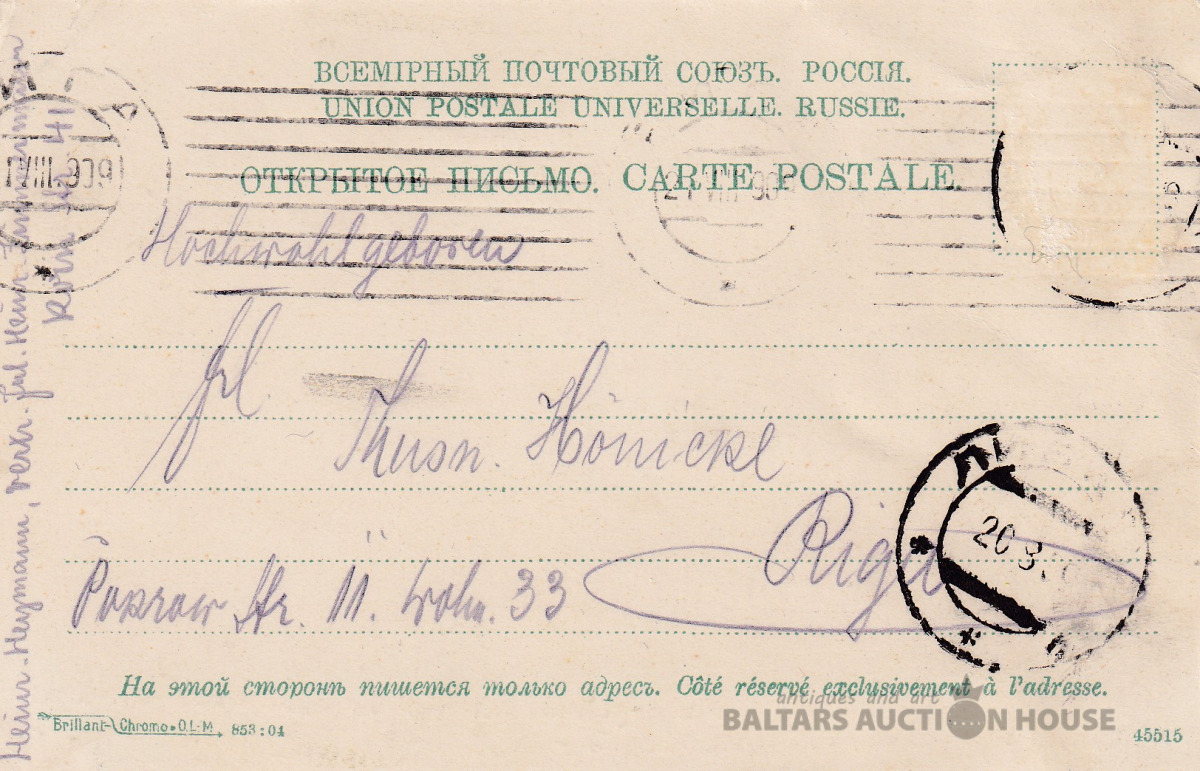 ВСЕМІРНЫЙ ПОЧТОВЫЙ СОЮЗЪ. РОССІЯ.
UNION POSTALE UNIVERSELLE. RUSSIE.
ОТКРЫТОЕ ПИСЬМО. CARTE POSTALE.
Hochwohlgeboren
Frl.
Thusn. Hönicke
Riga
Str. 11. Wohn. 33
20 8
На этой сторонѣ пишется только адресъ. Côté réservé exclusivement à l'adresse.
Brillant-Chromo O.L-M. 853:04
45515
antiques and art
BALTARS AUCTION HOUSE
Heinr. Heymann,